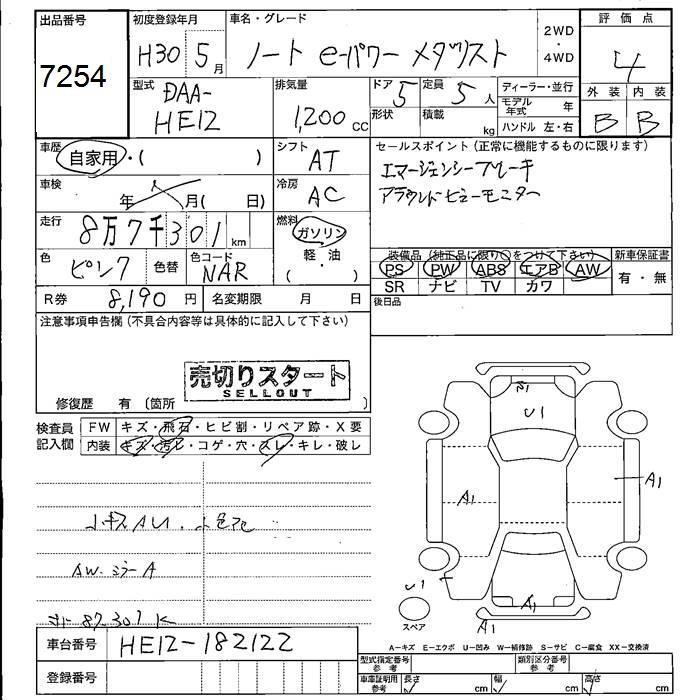 出品番号 初度登録年月 車名・グレード 2WD 評価点
7254 H30 5月 ノート e-パワー メダリスト ・4WD 4
型式 排気量 ドア 定員 ディーラー・並行 外装 内装
DAA- 1,200cc 5 5人 モデル年式 年 B B
HE12 形状 積載 kg ハンドル 左・右
車歴 自家用・( ) シフト AT セールスポイント(正常に機能するものに限ります)
車検 年 月( 日) 冷房 AC エマージェンシーブレーキ
アラウンドビューモニター
走行 8万7千301km 燃料 ガソリン
軽・油
( )
色 ピンク 色替 色コード NAR 装備品(純正品に限り○をつけて下さい) 新車保証書
PS PW ABS エアB AW 有・無
SR ナビ TV カワ
R券 8,190円 名変期限 月 日 後日品
注意事項申告欄(不具合内容等は具体的に記入して下さい)
売切りスタート
SELLOUT
修復歴 有 (箇所 )
検査員記入欄 FW キズ・飛石・ヒビ割・リペア跡・X要
内装 キズ・汚レ・コゲ・穴・スレ・キレ・破レ
U1
A1 A1
小キズAU.
AW.ミラーA
U1
A1
A1
スペア
87.301K
車台番号 HE12-182122
A-キズ E-エクボ U-凹み W-補修跡 S-サビ C-腐食 XX-交換済
登録番号 型式指定番号 参考 類別区分番号 参考
車庫証明用 参考 長さ cm 幅 cm 高さ cm